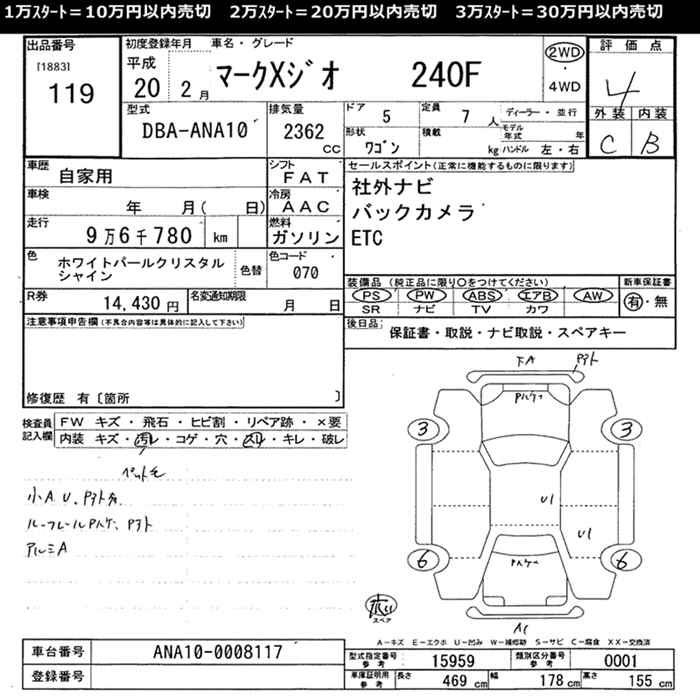 1万ｽﾀｰﾄ＝10万円以内売切　2万ｽﾀｰﾄ＝20万円以内売切　3万ｽﾀｰﾄ＝30万円以内売切
出品番号
[1883]
119
初度登録年月
平成
20 2 月
車名・グレード
マークXジオ 240F
2WD
・
4WD
評価点
4
外装 内装
C B
型式
DBA-ANA10
排気量
2362 cc
ドア 5
定員 7 人
ディーラー・並行
形状 ワゴン
積載 kg
モデル年式 年
ハンドル 左・右
車歴 自家用
シフト FAT
車検 年 月( 日)
冷房 AAC
走行 9万6千780 km
燃料 ガソリン
色 ホワイトパールクリスタル
シャイン
色替
色コード 070
R券 14,430 円
名変通知期限 月 日
セールスポイント(正常に機能するものに限ります)
社外ナビ
バックカメラ
ETC
装備品 (純正品に限り○をつけてください)
PS PW ABS エアB AW
SR ナビ TV カワ
新車保証書
有・無
後日品 保証書・取説・ナビ取説・スペアキー
注意事項申告欄(不具合内容等は具体的に記入して下さい)
修復歴 有〔箇所 〕
検査員
記入欄
FW キズ・飛石・ヒビ割・リペア跡・×要
内装 キズ・汚レ・コゲ・穴・スレ・キレ・破レ
小A U、
ルーフレールPハゲ、
アルミA
下A
Pハゲ
3
3
U1
U1
6
6
Pハゲ
A1
スペア
A－キズ E－エクボ U－凹み W－補修跡 S－サビ C－腐食 XX－交換済
車台番号 ANA10-0008117
登録番号
型式指定番号
参考
15959
類別区分番号
参考
0001
車庫証明用
参考
長さ 469 cm 幅 178 cm 高さ 155 cm